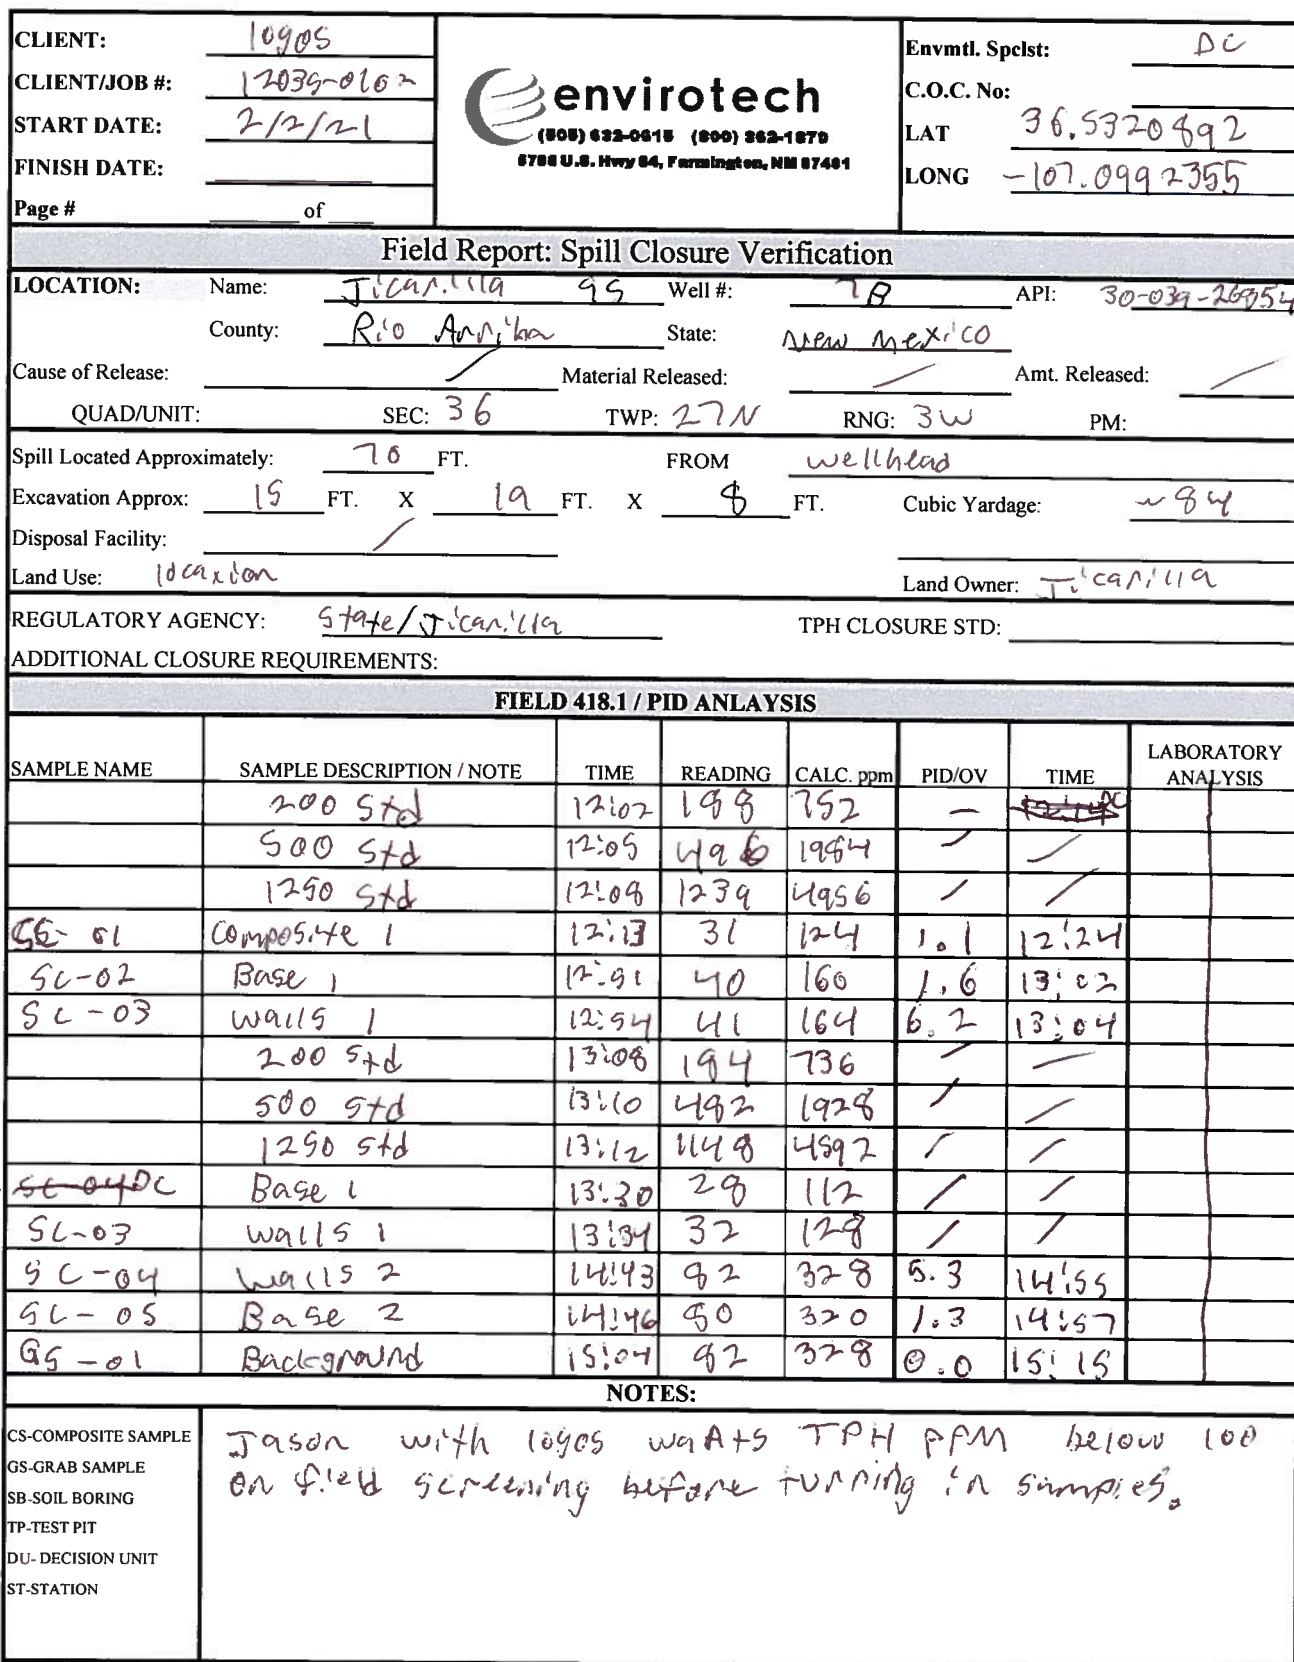 CLIENT: logos
CLIENT/JOB #: 12035-0162
START DATE: 2/2/21
FINISH DATE:
Page # of
envirotech
(505) 632-0615 (800) 362-1879
5796 U.S. Hwy 64, Farmington, NM 87401
Envmtl. Spclst: DC
C.O.C. No:
LAT 36.5320892
LONG -107.0992355
Field Report: Spill Closure Verification
LOCATION: Name: Jicarilla 95 Well #: 7B API: 30-039-26854
County: Rio Arriba State: New Mexico
Cause of Release: / Material Released: / Amt. Released: /
QUAD/UNIT: SEC: 36 TWP: 27N RNG: 3W PM:
Spill Located Approximately: 70 FT. FROM wellhead
Excavation Approx: 15 FT. X 19 FT. X 8 FT. Cubic Yardage: ~84
Disposal Facility: /
Land Use: location Land Owner: Jicarilla
REGULATORY AGENCY: State/Jicarilla TPH CLOSURE STD:
ADDITIONAL CLOSURE REQUIREMENTS:
FIELD 418.1 / PID ANLAYSIS
SAMPLE NAME SAMPLE DESCRIPTION / NOTE TIME READING CALC. ppm PID/OV TIME LABORATORY ANALYSIS
200 Std 12:02 188 752 - DC
500 Std 12:05 496 1984 / /
1250 Std 12:08 1239 4956 / /
SC-01 Composite 1 12:13 31 124 1.1 12:24
SC-02 Base 1 12:51 40 160 1.6 13:02
SC-03 Walls 1 12:54 41 164 6.2 13:04
200 Std 13:08 184 736 / /
500 Std 13:10 482 1928 / /
1250 Std 13:12 1148 4592 / /
SC-04 DC Base 1 13:30 28 112 / /
SC-03 Walls 1 13:34 32 128 / /
SC-04 Walls 2 14:43 82 328 5.3 14:55
SC-05 Base 2 14:46 80 320 1.3 14:57
GS-01 Background 15:04 82 328 0.0 15:15
NOTES:
CS-COMPOSITE SAMPLE
GS-GRAB SAMPLE
SB-SOIL BORING
TP-TEST PIT
DU- DECISION UNIT
ST-STATION
Jason with logos wants TPH PPM below 100
on field screening before turning in samples.